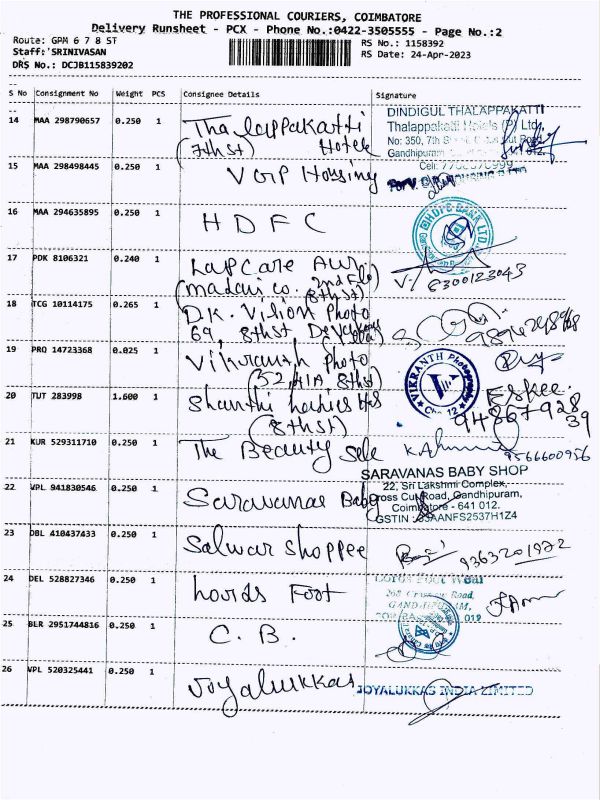 THE PROFESSIONAL COURIERS, COIMBATORE
Delivery Runsheet - PCX - Phone No.:0422-3505555 - Page No.:2
Route: GPM 6 7 8 ST
RS No.: 1158392
Staff:'SRINIVASAN
RS Date: 24-Apr-2023
DRS No.: DCJB115839202
S No Consignment No Weight PCS Consignee Details Signature
14 MAA 298790657 0.250 1 Thalappakatti
(7th st) Hotel
DINDIGUL THALAPPAKATTI
Thalappakatti Hotels (P) Ltd,
No: 350, 7th Road
Gandhipuram
Cell:
15 MAA 298498445 0.250 1 VGP Housing
16 MAA 294635895 0.250 1 HDFC
HDFC BANK LTD.
17 PDK 8106321 0.240 1 Lapcare Aur.
(madani co. 2nd Flo
8th st)
8300123043
18 TCG 10114175 0.265 1 D.K. Vision Photo
69, 8th st
19 PRO 14723368 0.025 1 Vikranth Photo
(52, 41A, 8th st)
VIKRANTH Photography
20 TUT 283998 1.600 1 Shanthi Ladies
(8th st)
94867928
39
21 KUR 529311710 0.250 1 The Beauty Sele
9566600956
SARAVANAS BABY SHOP
22, Sri Lakshmi Complex,
Cross Cut Road, Gandhipuram,
Coimbatore - 641 012.
GSTIN : 33AANFS2537H1Z4
22 VPL 941830546 0.250 1 Saravanas Baby
23 DBL 410437433 0.250 1 Salwar Shoppee
9363201972
24 DEL 528827346 0.250 1 Foot
GANDHIPURAM,
25 BLR 2951744816 0.250 1 C.B.
26 VPL 520325441 0.250 1 Joyalukkas
JOYALUKKAS INDIA LIMITED